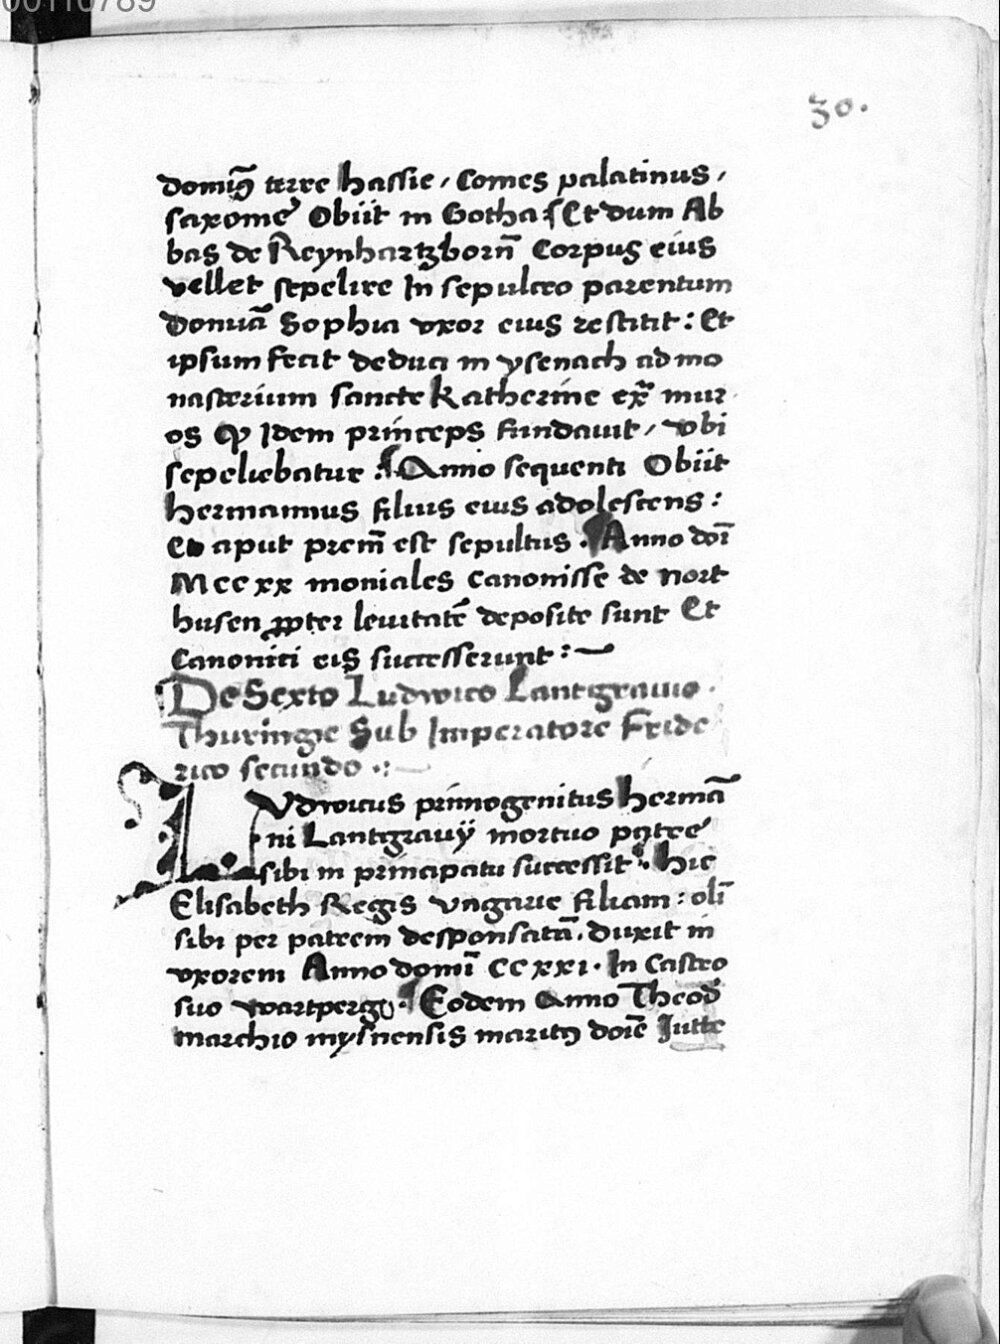 00110789
30.
domi9 terre hassie, Comes palatinus,
saxonie Obiit in Gotha Et dum Ab
bas de Reynhartzborn̄ Corpus eius
vellet sepelire In sepulcro parentum
Domīa Sophia vxor eius restitit: Et
ipsum fecit deduci in ysenach ad mo
nasterium sancte Katherine ex̄ mur
os Idem princeps fundauit, vbi
sepeliebatur : Anno sequenti Obiit
hermannus filius eius adolescens:
Et aput prem̄ est sepultus . Anno doī
M cc xx moniales Canonisse de nort
husen ꝓpter leuitatē deposite sunt Et
Canonici eis successerunt :~
De Sexto Ludwico Lantgrauio .
Thuringie Sub Imperatore Fride
rico secundo .:
LVdwicus primogenitus hermā
ni Lantgrauij mortuo patre
sibi in principatu successit : hic
Elisabeth Regis vngarie filiam : olī
sibi per patrem desponsatā . duxit in
vxorem Anno domī CC xxi . In Castro
suo wartperg . Eodem Anno Theod̄
marchio mysnensis marit9 doīe Jutte